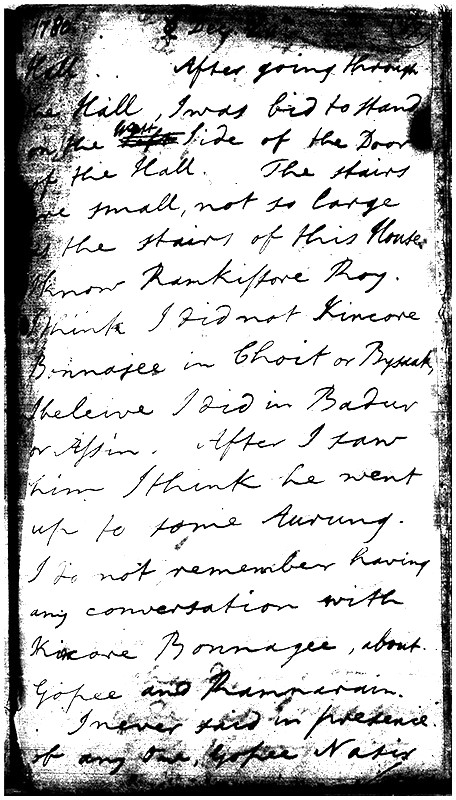 1780. & Day
Hall. After going through
the Hall, I was bid to stand
on the West Side of the Door
of the Hall. The stairs
are small, not so large
as the stairs of this House.
I know Ramkissore Roy.
I think I did not Kincore
Bonnajee in Choit or Bysaak,
I beleive I did in Badur
or Assin. After I saw
him I think he went
up to some Aurung.
I do not remember having
any conversation with
Kincore Bonnagee, about
Gopee and Ramnarain.
I never said in presence
of any One, Gopee Nasir